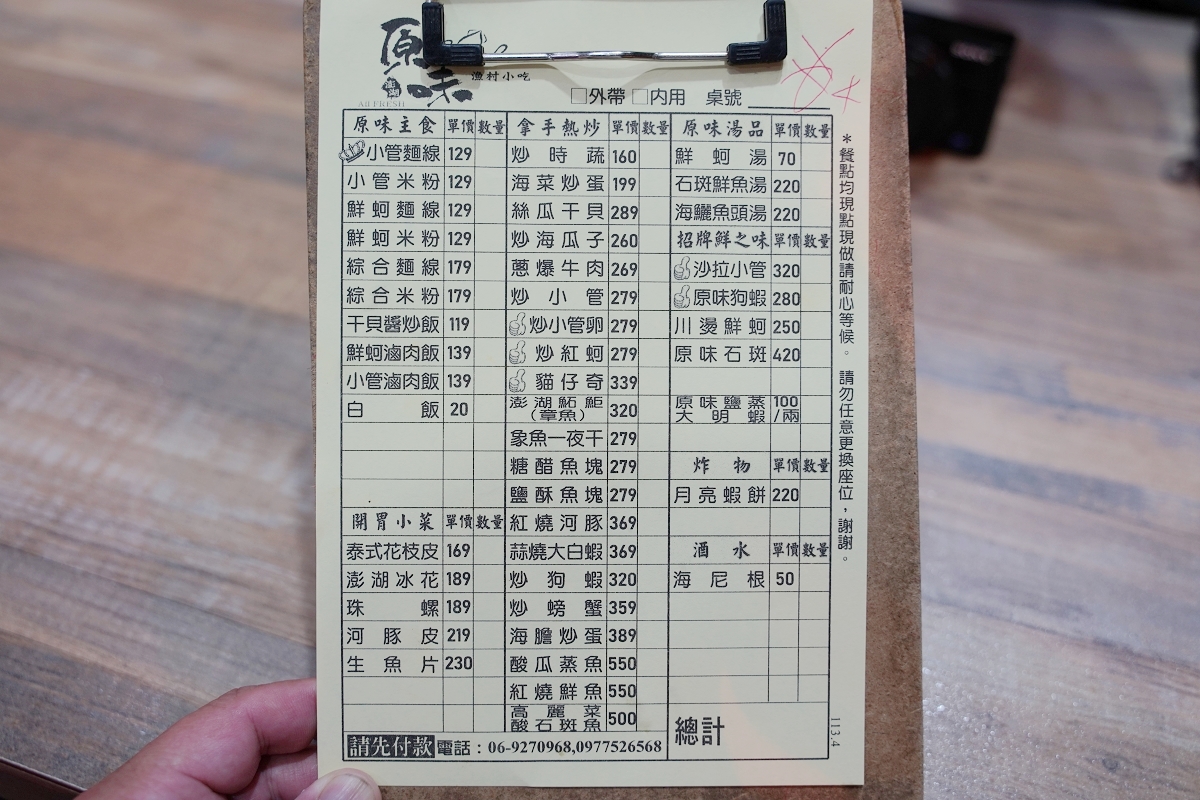 原味
澎湖
漁村小吃
All FRESH
□外帶 □內用 桌號
4
原味主食 單價 數量
小管麵線 129
小管米粉 129
鮮蚵麵線 129
鮮蚵米粉 129
綜合麵線 179
綜合米粉 179
干貝醬炒飯 119
鮮蚵滷肉飯 139
小管滷肉飯 139
白飯 20
開胃小菜 單價 數量
泰式花枝皮 169
澎湖冰花 189
珠螺 189
河豚皮 219
生魚片 230
拿手熱炒 單價 數量
炒時蔬 160
海菜炒蛋 199
絲瓜干貝 289
炒海瓜子 260
蔥爆牛肉 269
炒小管 279
炒小管卵 279
炒紅蚵 279
貓仔奇 339
澎湖鮖鮔(章魚) 320
象魚一夜干 279
糖醋魚塊 279
鹽酥魚塊 279
紅燒河豚 369
蒜燒大白蝦 369
炒狗蝦 320
炒螃蟹 359
海膽炒蛋 389
酸瓜蒸魚 550
紅燒鮮魚 550
高麗菜酸石斑魚 500
原味湯品 單價 數量
鮮蚵湯 70
石斑鮮魚湯 220
海鱺魚頭湯 220
招牌鮮之味 單價 數量
沙拉小管 320
原味狗蝦 280
川燙鮮蚵 250
原味石斑 420
原味鹽蒸大明蝦 100/兩
炸物 單價 數量
月亮蝦餅 220
酒水 單價 數量
海尼根 50
總計
請先付款 電話：06-9270968,0977526568
＊餐點均現點現做請耐心等候。請勿任意更換座位，謝謝。
113.4